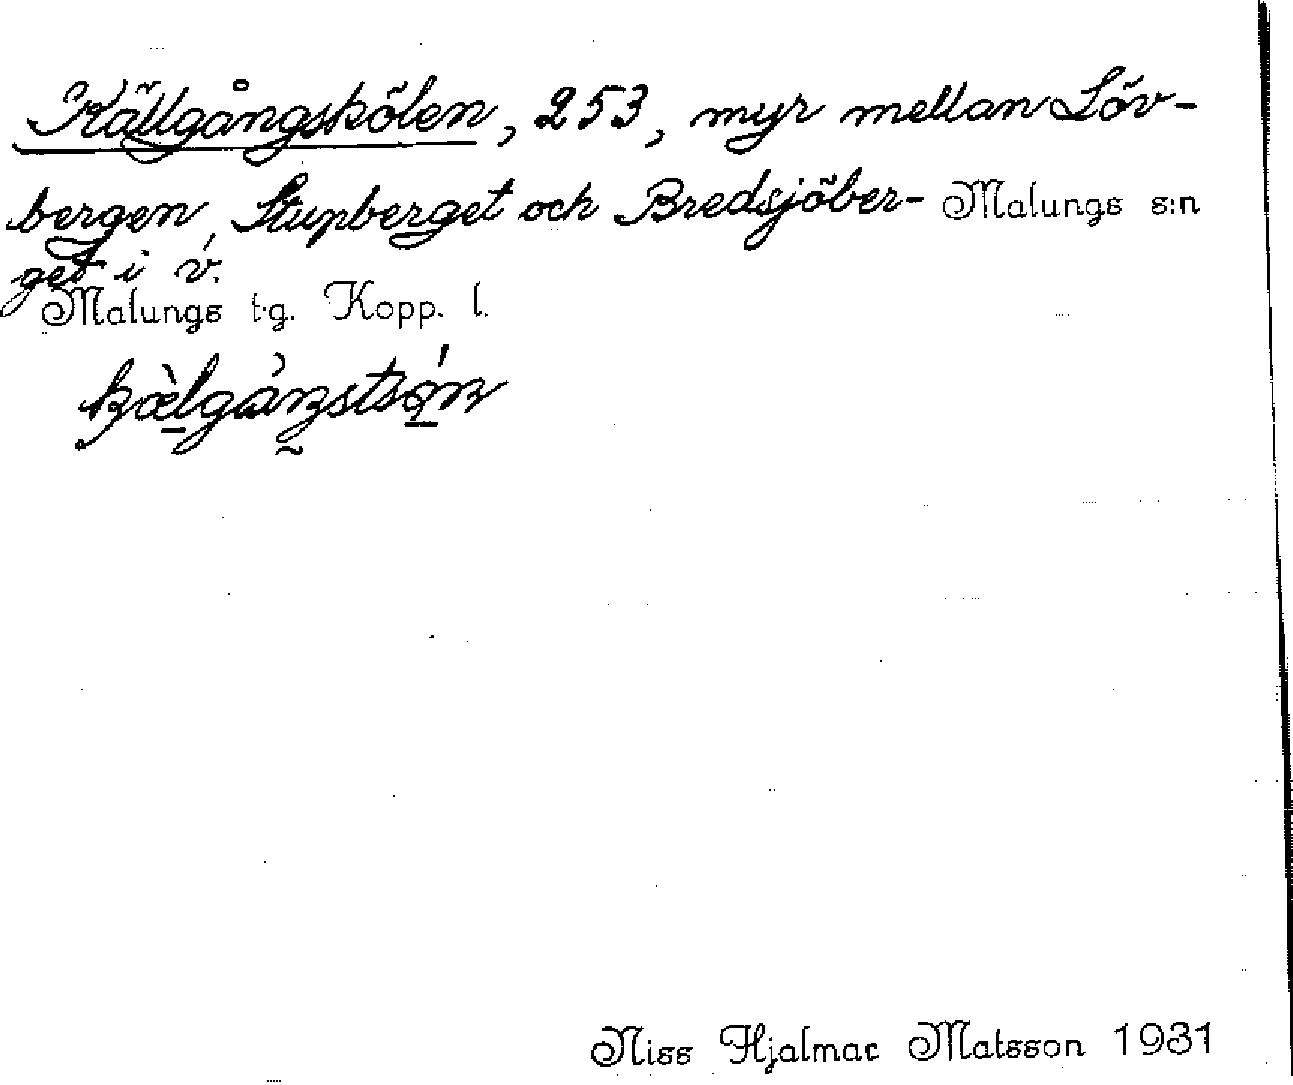 Källgångskölen, 253, myr mellan Löv-
bergen, Stupberget och Bredsjöber- Malungs s:n
get i v.
Malungs t.g. Kopp. l.
Niss Hjalmar Matsson 1931